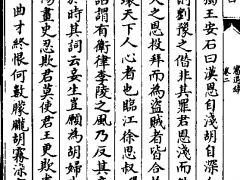 卷二
獨王安石曰漢恩自淺胡自深
則劉豫之僭非其罪君恩淺而
人之恩投拜而為盜賊者皆合
壞天下人心者也臨江徐思叔
謂有衛律李陵之風乃反其意
於時其詞云妾生豈願為胡婦
傷畫史忍欺君莫使君王更欺
曲才終恨何數朦朧胡霧染